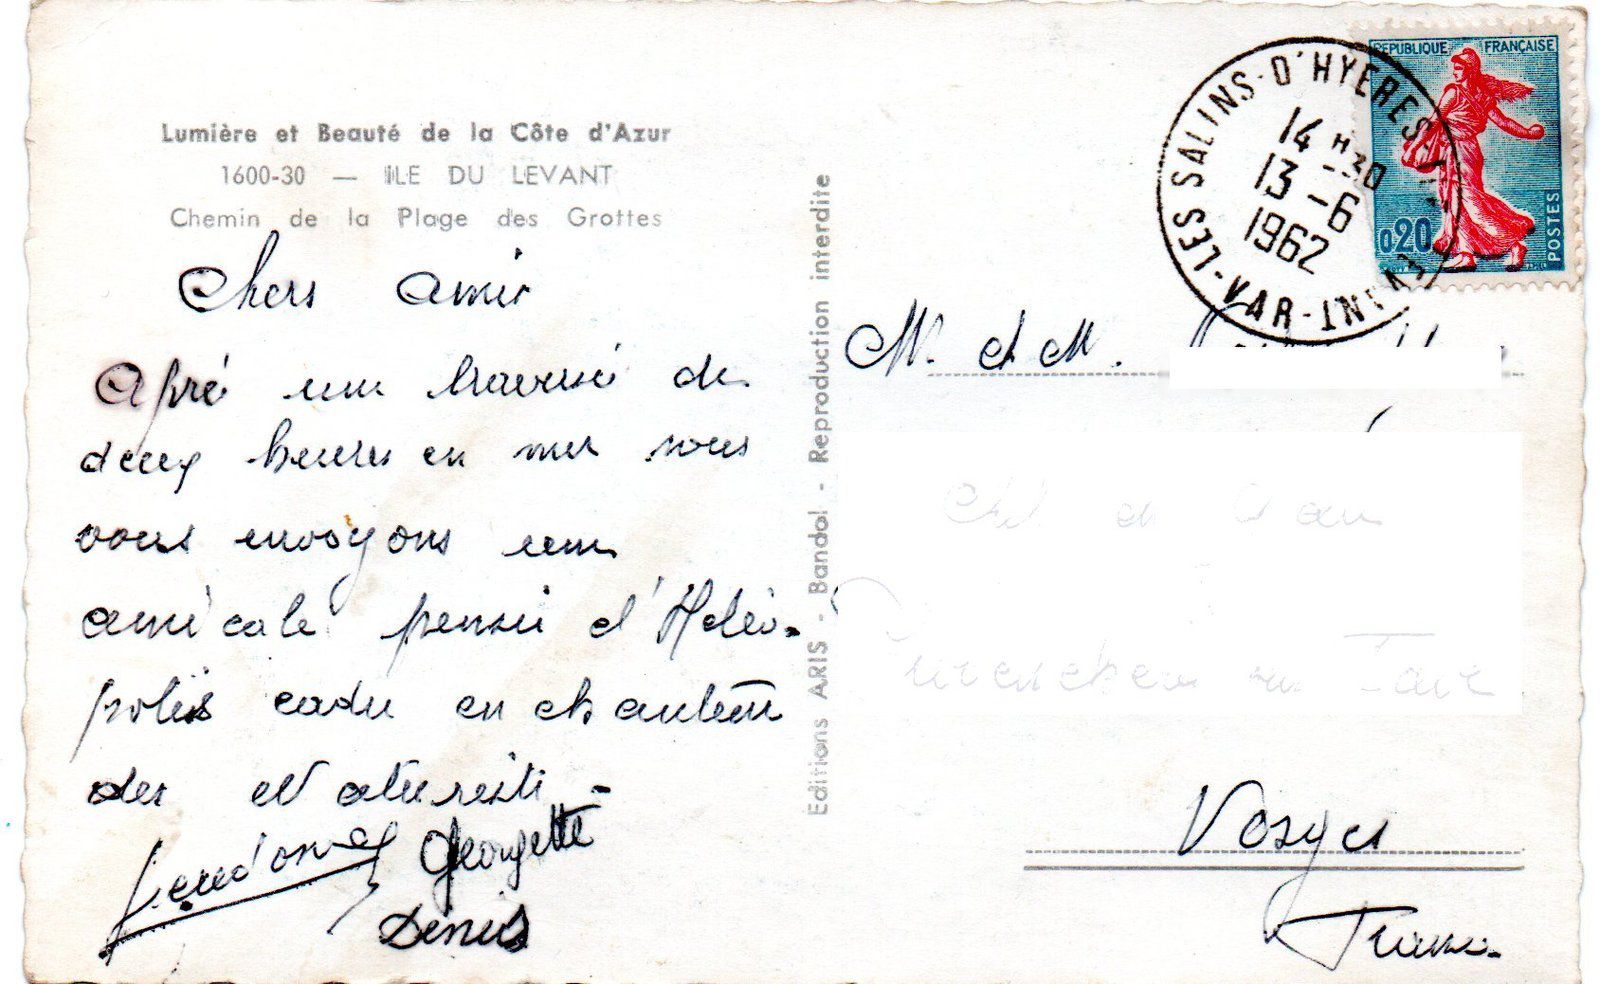 Lumière et Beauté de la Côte d'Azur
1600-30 — ILE DU LEVANT
Chemin de la Plage des Grottes
Chers amis
Apré une traversé de
deux heures en mer nous
vous envoyons une
amicale pensée d'Hélio-
polis cadre enchanteur
des Naturiste -
Georgette
Denis
Editions ARIS - Bandol - Reproduction interdite
LES SALINS-D'HYERES
VAR
14 H30
13 -6
1962
REPUBLIQUE FRANÇAISE
0,20
POSTES
M. et M.
Vosges
France